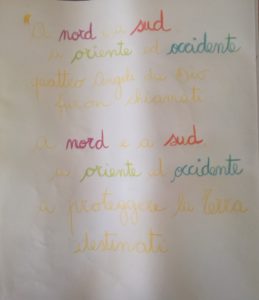 "A nord e a sud,
a oriente ed occidente
quattro Angeli da Dio
furon chiamati
a nord e a sud,
a oriente ed occidente
a proteggere la Terra
destinati